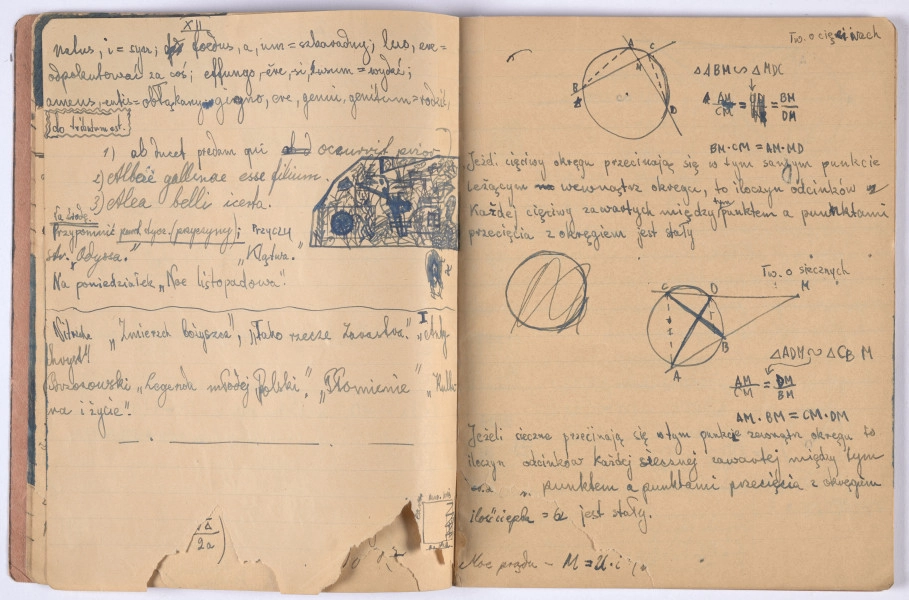 XII
natus, i = syn; foedus, a, um = szkaradny; luo, ere =
odpokutować za coś; effungo, ěre,
amens, entis = obłąkany; gigno, ere, genui, genitum = rodzić,
1) ab ducet predam qui occurrit prior
2) Albae gallinae esse filium.
3) Alea belli icerta.
Przypomnieć
str. „Odysea." „Klątwa."
Na poniedziałek „Noc listopadowa".
I
„Zmierzch bożyszcz", „Tako rzecze Zaratustra".
Brzozowski „Legenda młodej Polski". „Płomienie" „Kultu
ra i życie".
2a
Tw. o cięciwach
A
C
M
B
D
△ABM ∽ △MDC
AM/CM = = BM/DM
BM·CM = AM·MD
Jeżeli cięciwy okręgu przecinają się w tym samym punkcie
leżącym wewnątrz okręgu, to iloczyn odcinków
każdej cięciwy zawartych między tym punktem a punktami
przecięcia z okręgiem jest stały
Tw. o siecznych
C
D
M
B
A
△ADM ∽ △CBM
AM/CM = DM/BM
AM·BM = CM·DM
Jeżeli cieczne przecinają się w tym punkcie zewnątrz okręgu to
iloczyn odcinków każdej siecznej zawartej między tym
punktem a punktami przecięcia z okręgiem
jest stały.
Moc prądu – M = U·i